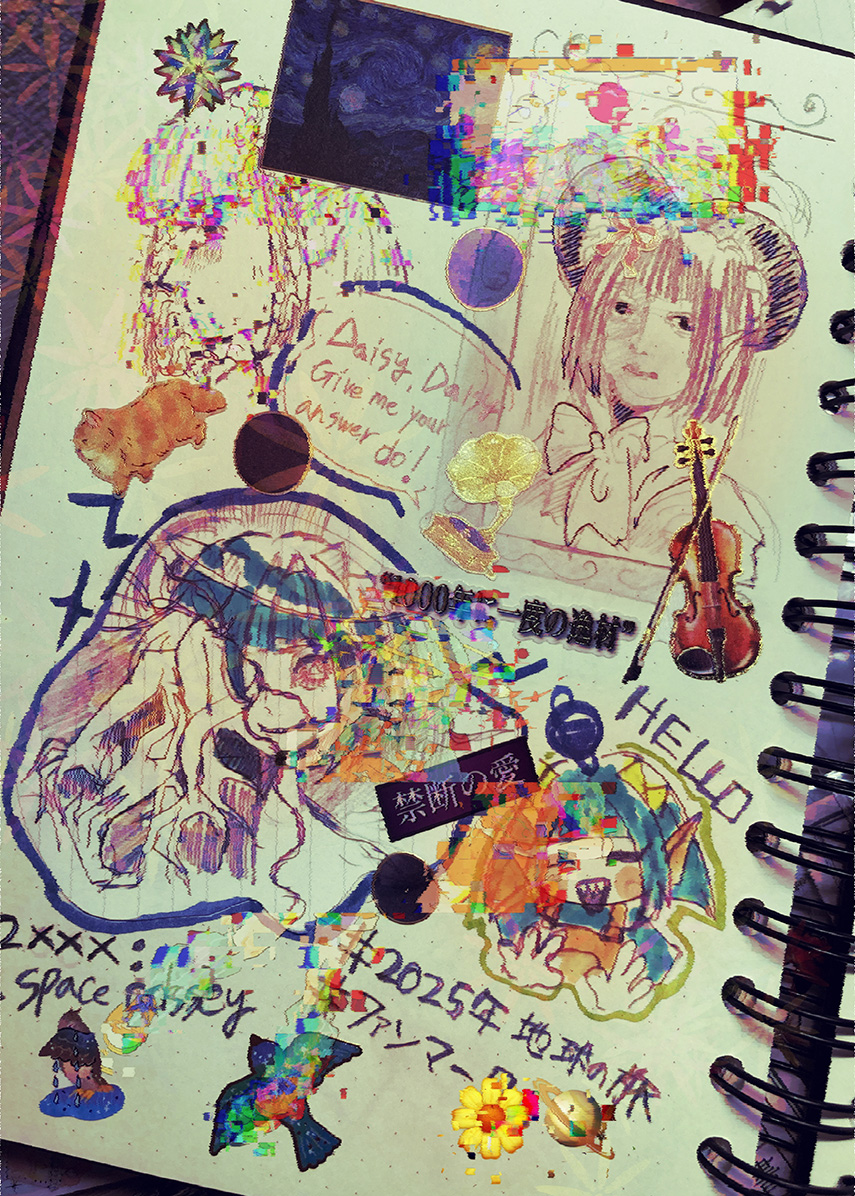 Daisy, Daisy
Give me your
answer do!
"1000年に一度の逸材"
HELLO
禁断の愛
2xxx:
space odssey
#2025年 地球の旅
ファンマー